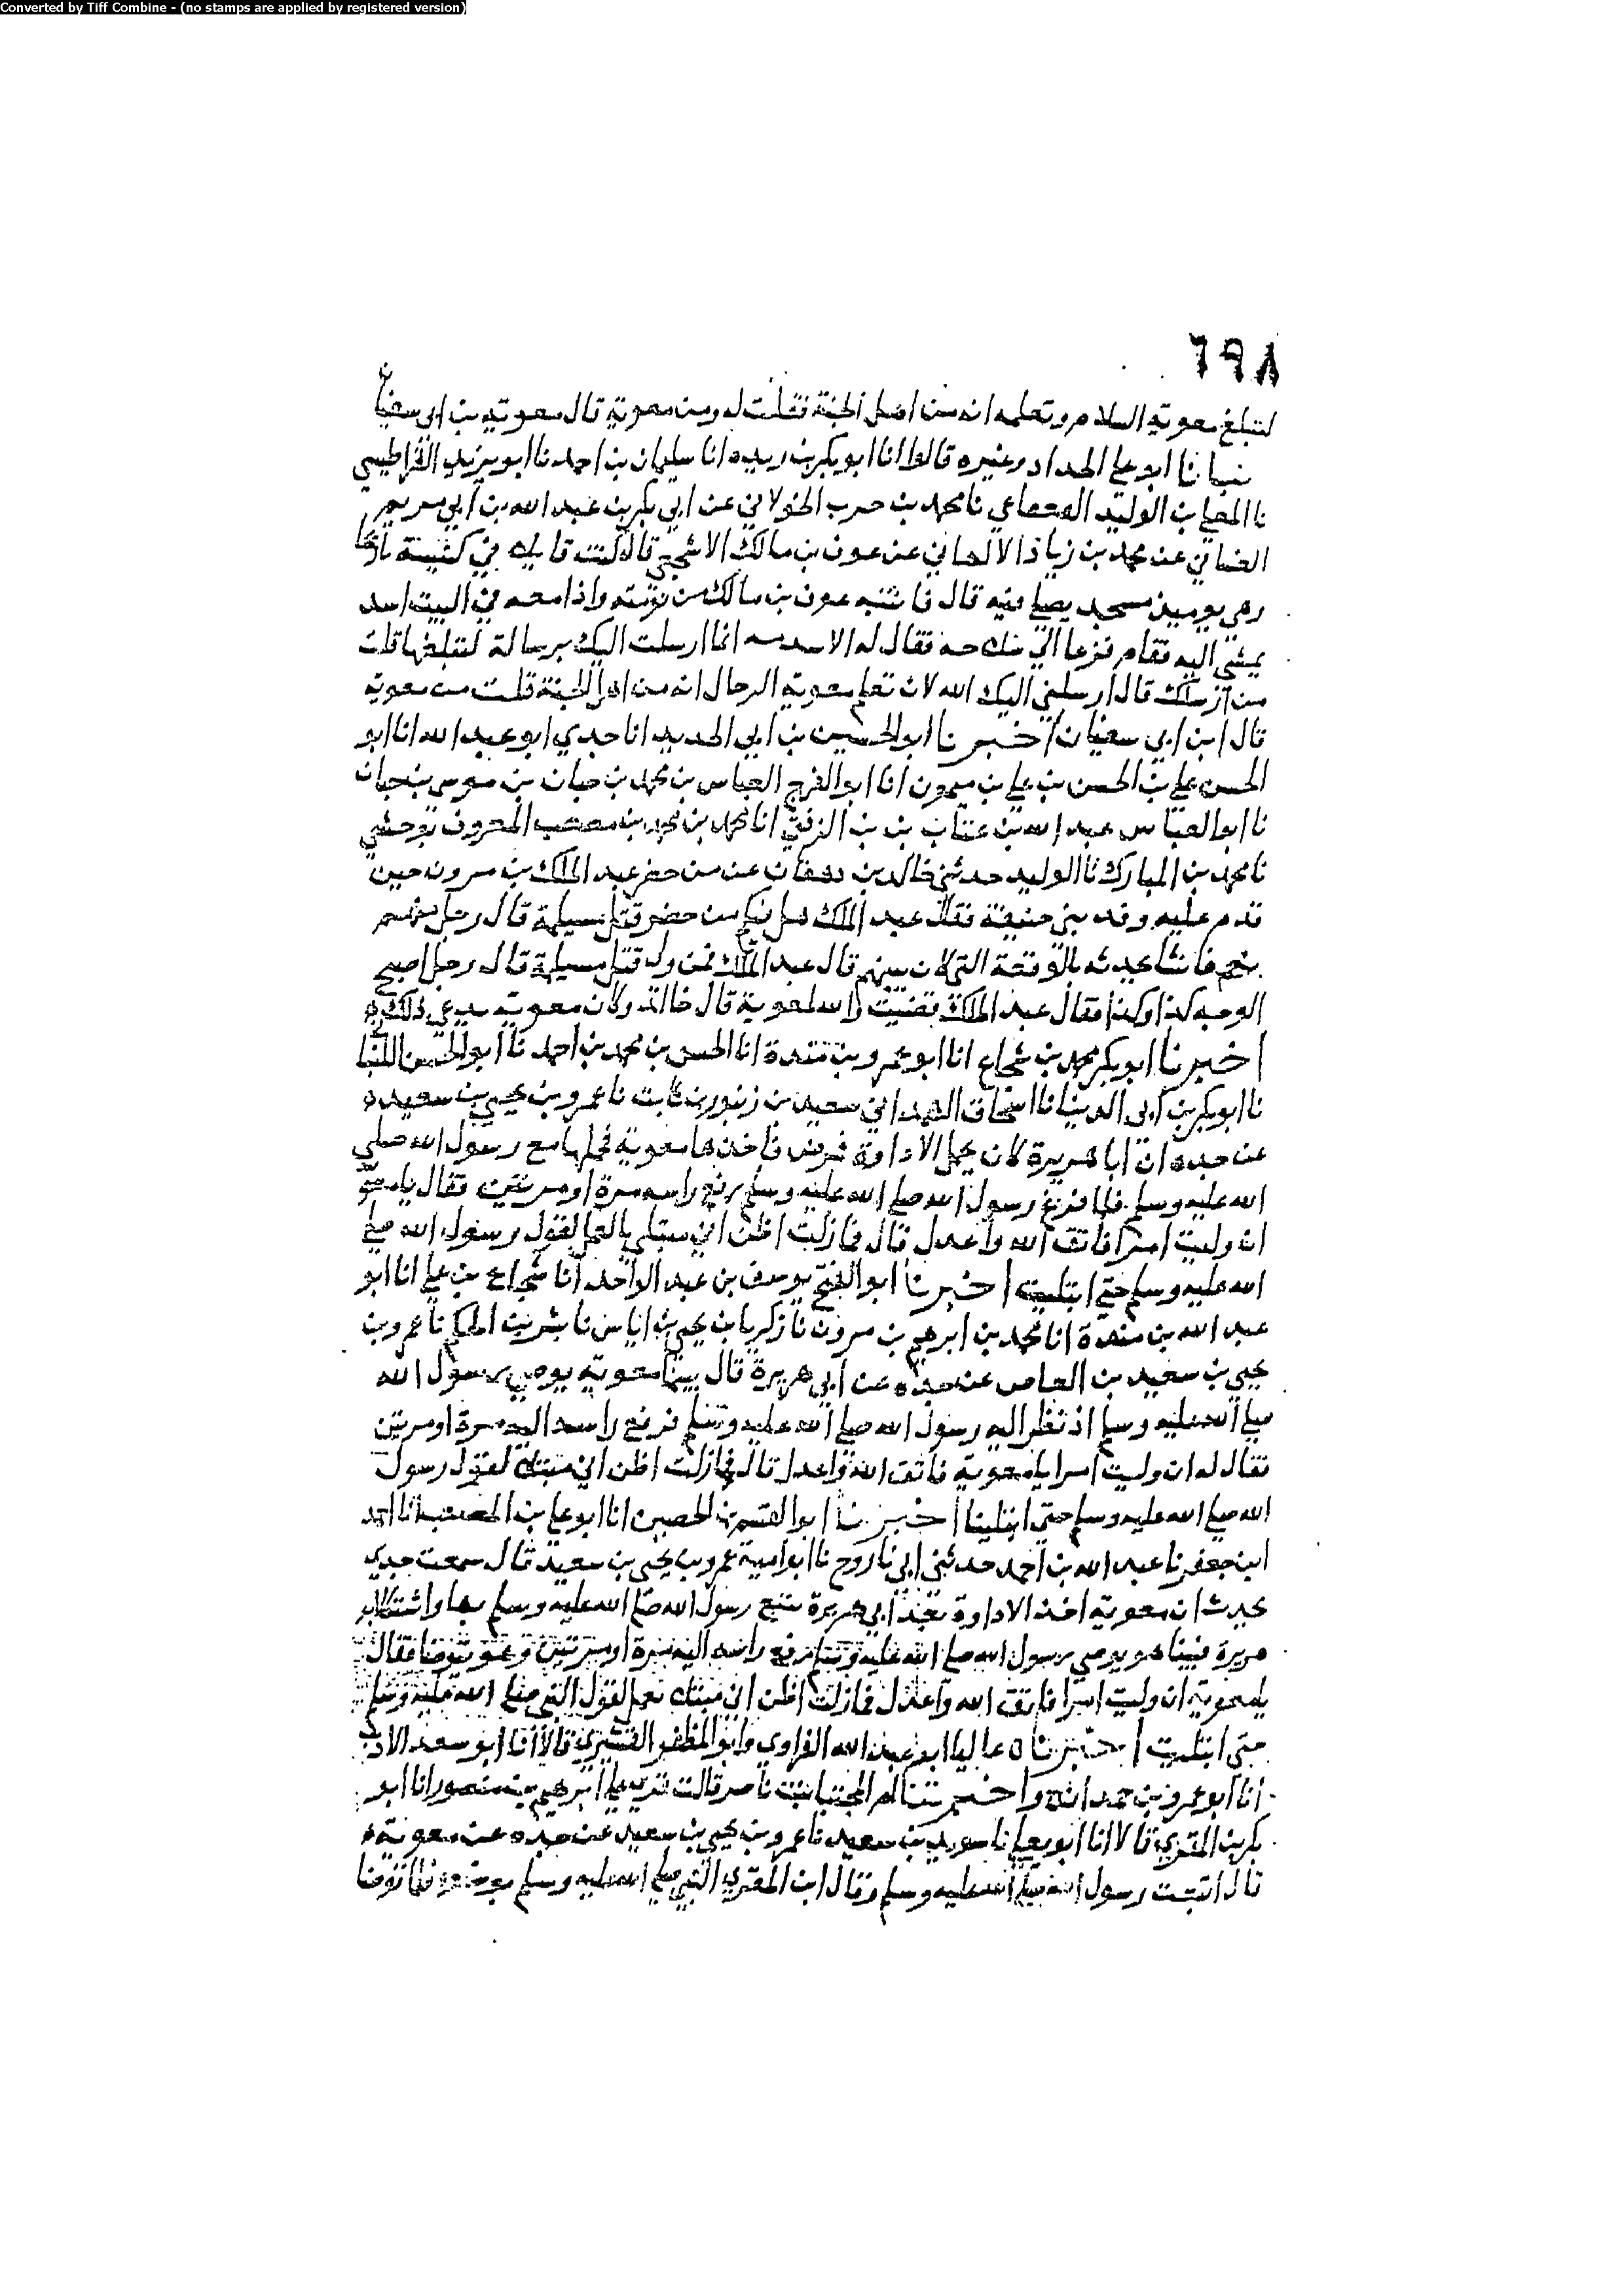 Converted by Tiff Combine - (no stamps are applied by registered version)
٦٩٨
لتبلغ معوية السلام وتعلمه انه من اهل الجنة فقلت له ومن معوية قال معوية بن ابى سفيان
نبانا ابو على الحداد وغيره قالوا انا ابو بكر بن ريده انا سليمان بن احمد نا ابو يزيد القراطيسي
نا المعلى بن الوليد القعقاعي نا محمد بن حرب الخولاني عن ابي بكر بن عبد الله بن ابي مريم
الغساني عن محمد بن زياد الالهاني عن عوف بن مالك الاشجعي قال كنت قايله في كنيسة باريحا
وهي يوميذ مسجد يصلى فيه قال فانتبه عوف بن مالك من نومته واذا معه في البيت اسد
يمشي اليه فقام فزعا الى سلاحه فقال له الاسد مه انما ارسلت اليك برسالة لتبلغها قلت
من ارسلك قال ارسلني اليك الله لان تعلم معوية الرحال انه من اهل الجنة قلت من معوية
قال ابن ابي سفيان اخبرنا ابو الحسين بن ابي الحديد انا جدي ابو عبد الله انا ابو
الحسن علي بن الحسن بن علي بن ميمون انا ابو الفرج العباس بن محمد بن حبان بن موسى بن حبان
نا ابو العباس عبد الله بن عتاب بن الزفتي انا محمد بن محمد بن مصعب المعروف بوحشي
نا محمد بن المبارك نا الوليد حدثني خالد بن دهقان عن من حضر عبد الملك بن مرون حين
قدم عليه وفد بني حنيفة فقال عبد الملك هل فيكم من حضر قتل مسيلمة قال رجل منهم
نعم فانشا يحدثه بالوقعة التي كان بينهم قال عبد الملك فمن ولي قتل مسيلمة قال رجل اصبح
الوجه كذا وكذا فقال عبد الملك قضيت والله لمعوية قال خالد وكان معوية يدعي ذلك
اخبرنا ابو بكر محمد بن شجاع انا ابو عمرو بن مندة انا الحسن بن محمد بن احمد نا ابو الحسن اللنباني
نا ابو بكر بن ابي الدنيا نا اسحاق الهمداني سعيد بن زنبور بن ثابت نا عمرو بن يحيى بن سعيد
عن جده ان ابا هريرة كان يحمل الاداوة فمرض فاخذها معوية فحملها مع رسول الله صلى
الله عليه وسلم فلما فرغ رسول الله صلى الله عليه وسلم رفع راسه مرة او مرتين فقال يا معوية
ان وليت امرا فاتق الله واعدل قال فما زلت اظن اني مبتلى بالعمل لقول رسول الله صلى
الله عليه وسلم حتى ابتليت اخبرنا ابو الفتح يوسف بن عبد الواحد انا شجاع بن علي انا ابو
عبد الله بن مندة انا محمد بن ابرهيم بن مرون نا زكريا بن يحيى بن اياس نا بشر بن الحكم نا عمرو بن
يحيى بن سعيد بن العاص عن جده عن ابي هريرة قال بينا معوية يوضي رسول الله
صلى الله عليه وسلم اذ نظر اليه رسول الله صلى الله عليه وسلم فرفع راسه اليه مرة او مرتين
فقال له ان وليت امرا يا معوية فاتق الله واعدل قال فما زلت اظن اني مبتلى لقول رسول
الله صلى الله عليه وسلم حتى ابتلينا اخبرنا ابو القسم بن الحصين انا ابو علي بن المذهب انا احمد
ابن جعفر نا عبد الله بن احمد حدثني ابي نا روح نا ابو امية عمرو بن يحيى بن سعيد قال سمعت جدي
يحدث ان معوية اخذ الاداوة بعد ابي هريرة يتبع رسول الله صلى الله عليه وسلم بها واشتكا ابو
هريرة فبينا هو يوضي رسول الله صلى الله عليه وسلم رفع راسه اليه مرة او مرتين وهو يتوضا فقال
يا معوية ان وليت امرا فاتق الله واعدل فما زلت اظن اني مبتلى بعمل لقول النبي صلى الله عليه وسلم
حتى ابتليت اخبرناه عاليا ابو عبد الله الفراوي وابو المظفر القشيري قالا انا ابو سعد الاديب
انا ابو عمرو بن حمدان واخبرتنا ام المجتبا بنت ناصر قالت قري علي ابرهيم بن منصور انا ابو
بكر بن المقري قالا انا ابو يعلى نا سويد بن سعيد نا عمرو بن يحيى بن سعيد عن جده عن معوية
قال اتبعت رسول الله صلى الله عليه وسلم وقال ابن المقري النبي صلى الله عليه وسلم بوضو فلما توضا